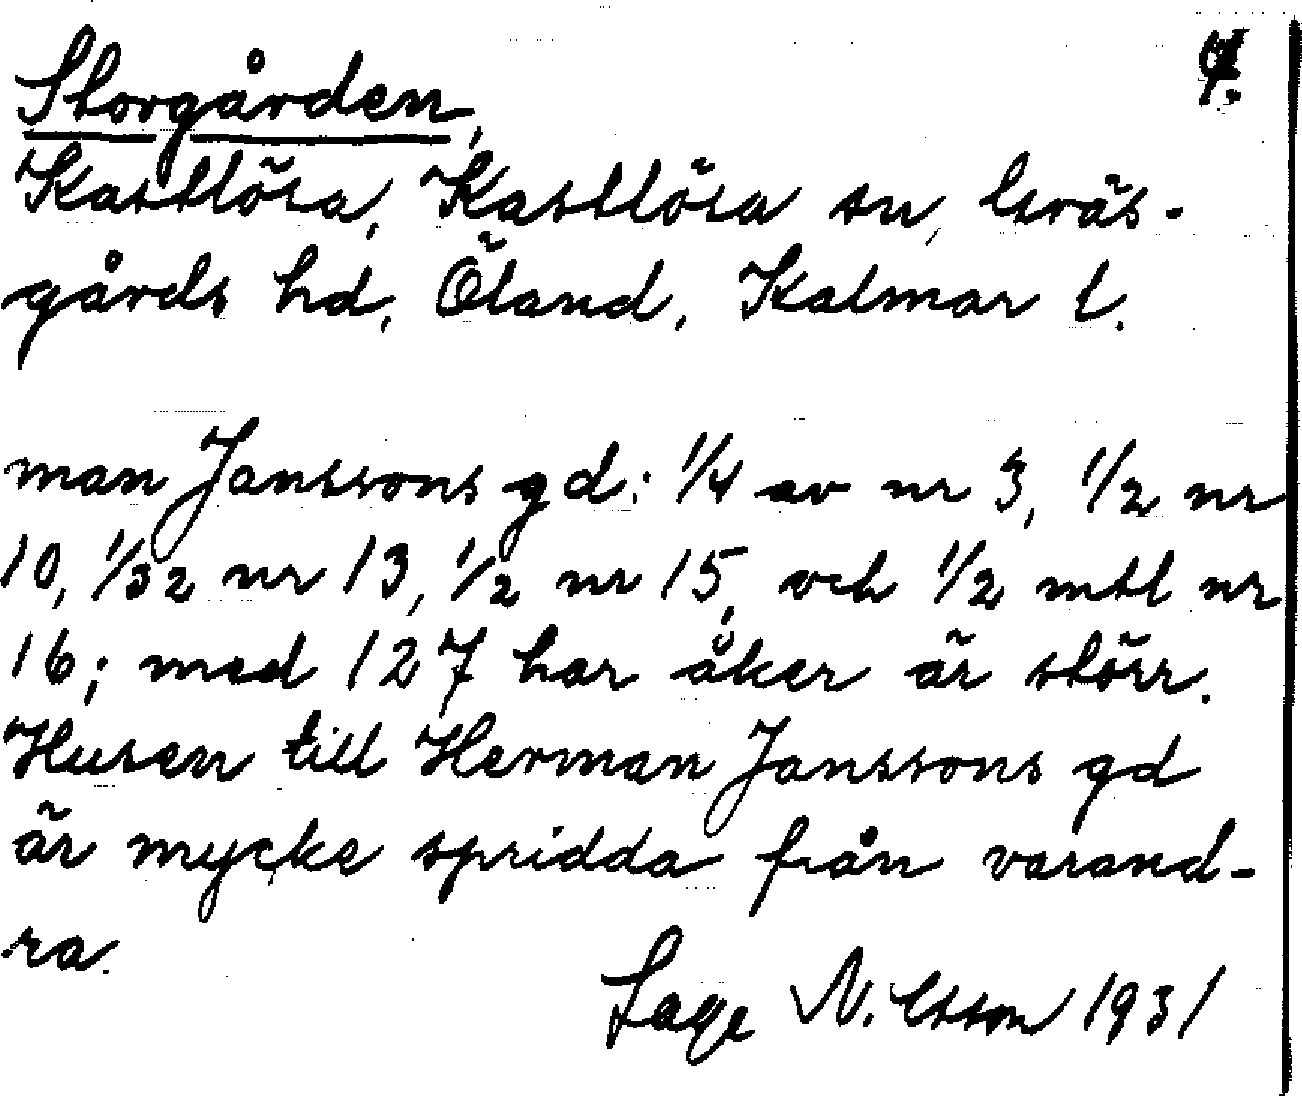 Storgården,
Kastlösa, Kastlösa sn, Gräs-
gårds hd, Öland, Kalmar l.
man Janssons gd: 1/4 av nr 3, 1/2 nr
10, 1/32 nr 13, 1/2 nr 15, och 1/2 mtl nr
16; med 127 har åker är störr.
Husen till Herman Janssons gd
är mycke spridda från varand-
ra.
Sage N. 1931